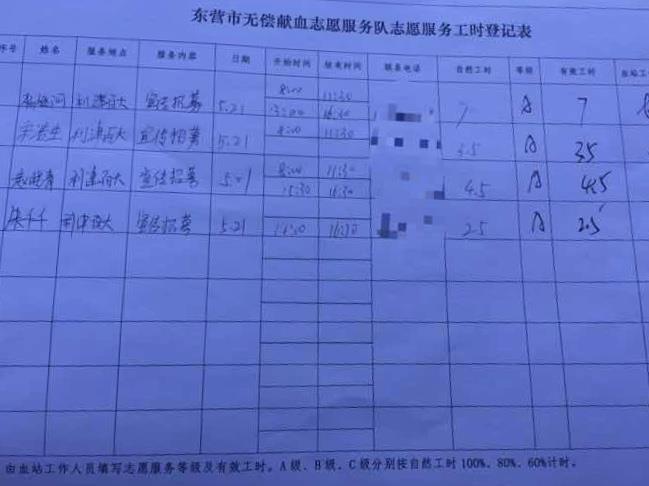 东营市无偿献血志愿服务队志愿服务工时登记表
序号 姓名 服务网点 服务内容 日期 开始时间 结束时间 联系电话 自然工时 等级 有效工时 血站工
利津百大 宣传招募 5.21 8:00 11:30 7 A 7
13:00 16:30
利津百大 宣传招募 5.21 8:00 11:30 3.5 A 3.5
利津百大 宣传招募 5.21 8:00 11:30 4.5 A 4.5
15:30 16:30
百大 宣传招募 5.21 2.5 A 2.5
14:00 16:30
由血站工作人员填写志愿服务等级及有效工时。A级、B级、C级分别按自然工时100%、80%、60%计时。